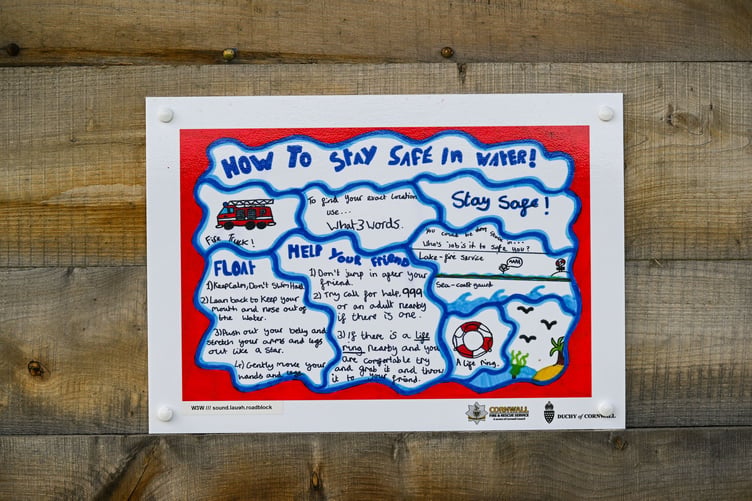 HOW TO STAY SAFE IN WATER!
Fire Truck!
To find your exact location
use...
What3words.
Stay Safe!
You could be
Who's job is it to safe you?
Lake - fire service
Sea - coast gaurd
FLOAT
1) Keep Calm, Don't Swim Hard
2) Lean back to keep your
mouth and nose out of
the water.
3) Push out your belly and
stretch your arms and legs
out like a star.
4) Gently move your
hands and legs
HELP YOUR FRIEND
1) Don't jump in after your
friend.
2) Try call for help, 999
or an adult nearby
if there is one.
3) If there is a life
ring nearby and you
are comfortable try
and grab it and throw
it to your friend.
A life ring.
W3W /// sound.laugh.roadblock
CORNWALL
FIRE & RESCUE SERVICE
DUCHY OF CORNWALL